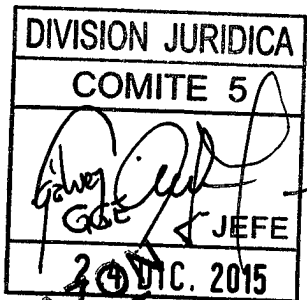 DIVISION JURIDICA
COMITE 5
GGE
JEFE
24 DIC. 2015